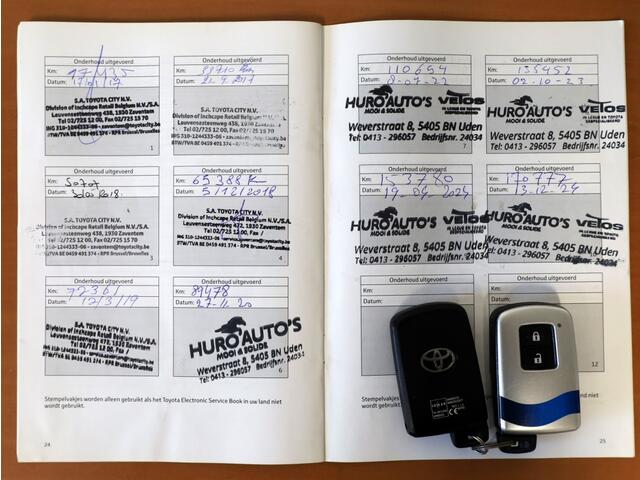 Onderhoud uitgevoerd
Km:
Datum: 17/01/17
S.A. TOYOTA CITY N.V.
Division of Inchcape Retail Belgium N.V./S.A.
Leuvensesteenweg 438, 1930 Zaventem
Tel 02/725 12 00, Fax 02/725 15 70
1
Onderhoud uitgevoerd
Km: 38710 km
Datum:
S.A. TOYOTA CITY N.V.
Division of Inchcape Retail Belgium N.V./S.A.
Leuvensesteenweg 438, 1930 Zaventem
Tel 02/725 12 00, Fax 02/725 15 70
BTW/TVA BE 0459 491 374 - RPR Brussel/Bruxelles
Onderhoud uitgevoerd
S.A. TOYOTA CITY N.V.
Division of Inchcape Retail Belgium N.V./S.A.
Leuvensesteenweg 438, 1930 Zaventem
Tel 02/725 12 00, Fax 02/725 15 70
BTW/TVA BE 0459 491 374 - RPR Brussel/Bruxelles
3
Onderhoud uitgevoerd
Km: 65388
Datum: 5/12/2018
S.A. TOYOTA CITY N.V.
Division of Inchcape Retail Belgium N.V./S.A.
BTW/TVA BE 0459 491 374 - RPR Brussel/Bruxelles
4
Onderhoud uitgevoerd
Km: 72367
Datum: 12/3/19
S.A. TOYOTA CITY N.V.
Division of Inchcape Retail Belgium N.V./S.A.
Onderhoud uitgevoerd
Km: 89478
Datum: 27-11-20
HURO AUTO'S
MOOI & SOLIDE
Weverstraat 8, 5405 BN Uden
Tel: 0413 - 296057 Bedrijfsnr. 24034
6
Stempelvakjes worden alleen gebruikt als het Toyota Electronic Service Book in uw land niet
wordt gebruikt.
24
Onderhoud uitgevoerd
Km: 110694
Datum: 8-07-22
HURO AUTO'S
MOOI & SOLIDE
VELOS
Weverstraat 8, 5405 BN Uden
Tel: 0413 - 296057 Bedrijfsnr. 24034
7
Onderhoud uitgevoerd
Km: 135952
Datum: 02-10-23
HURO AUTO'S
MOOI & SOLIDE
VELOS
Weverstraat 8, 5405 BN Uden
Tel: 0413 - 296057 Bedrijfsnr. 24034
Onderhoud uitgevoerd
Km: 153780
Datum: 19-04-2024
HURO AUTO'S
MOOI & SOLIDE
VELOS
Weverstraat 8, 5405 BN Uden
Tel: 0413 - 296057 Bedrijfsnr. 24034
Onderhoud uitgevoerd
Km: 170777
Datum: 13-12-24
HURO AUTO'S
MOOI & SOLIDE
VELOS
Weverstraat 8, 5405 BN Uden
Tel: 0413 - 296057 Bedrijfsnr. 24034
Onderhoud uitgevoerd
Km:
Datum:
Onderhoud uitgevoerd
12
Stempelvakjes worden alleen gebruikt als het Toy
wordt gebruikt.
niet
25
TOYOTA